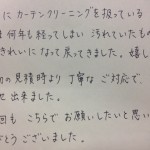 にカーテンクリーニングを扱っている
何年も経ってしまい汚れていたもの
きれいになって戻ってきました。嬉し
の見積時より丁寧なご対応で、
出来ました。
回もこちらでお願いしたいと思い
どうございました。